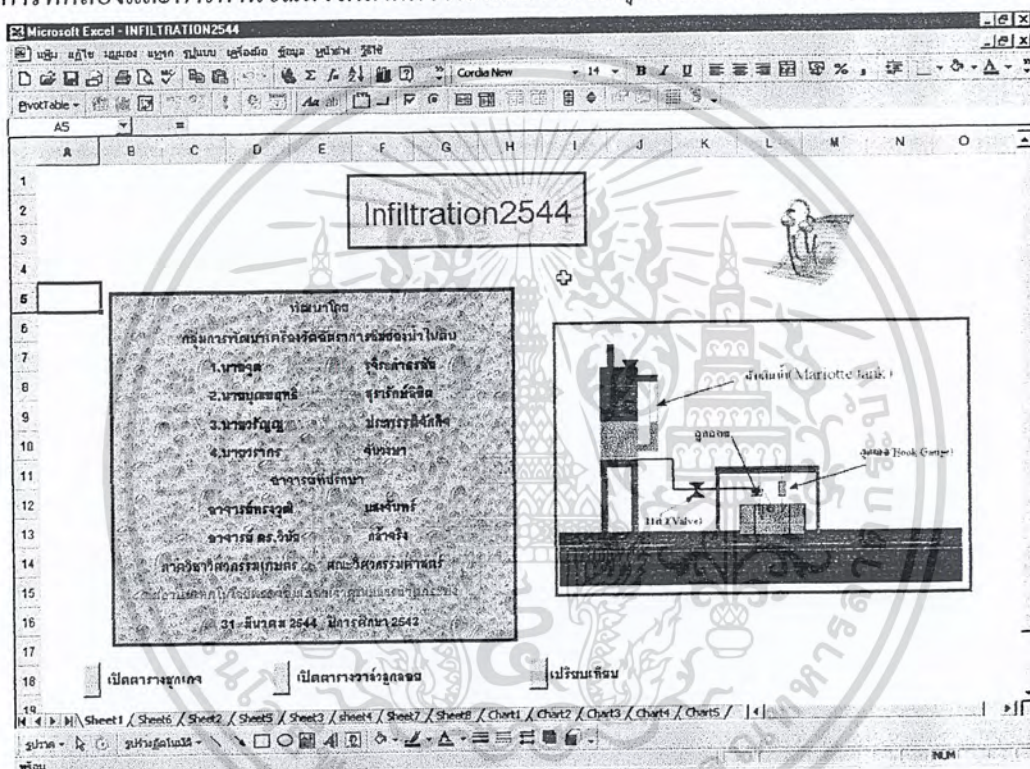 Microsoft Excel - INFILTRATION2544
แฟ้ม แก้ไข มุมมอง แทรก รูปแบบ เครื่องมือ ข้อมูล หน้าต่าง วิธีใช้
Cordia New 14 B I U
PivotTable
A5 =
A B C D E F G H I J K L M N O
1
2
3
4
5
6
7
8
9
10
11
12
13
14
15
16
17
18
19
Infiltration2544
พัฒนาโดย
กลุ่มการพัฒนาเครื่องวัดอัตราการซึมของน้ำในดิน
1.นายจุต
2.นายบุณยฤทธิ์
3.นายวรัญญู
4.นายวรากร
อาจารย์ที่ปรึกษา
อาจารย์ทรงวุฒิ แสงจันทร์
อาจารย์ ดร.วินัย กล้าจริง
ภาควิชาวิศวกรรมเกษตร คณะวิศวกรรมศาสตร์
31 มีนาคม 2544 ปีการศึกษา 2543
ถังเติมน้ำ(Mariotte Tank)
ลูกลอย
(Hook Gauge)
(Valve)
เปิดตารางฮุกเกจ
เปิดตารางวาล์วลูกลอย
เปรียบเทียบ
Sheet1 / Sheet6 / Sheet2 / Sheet5 / Sheet3 / sheet4 / Sheet7 / Sheet8 / Chart1 / Chart2 / Chart3 / Chart4 / Chart5 /
รูปวาด รูปร่างอัตโนมัติ
พร้อม
NUM